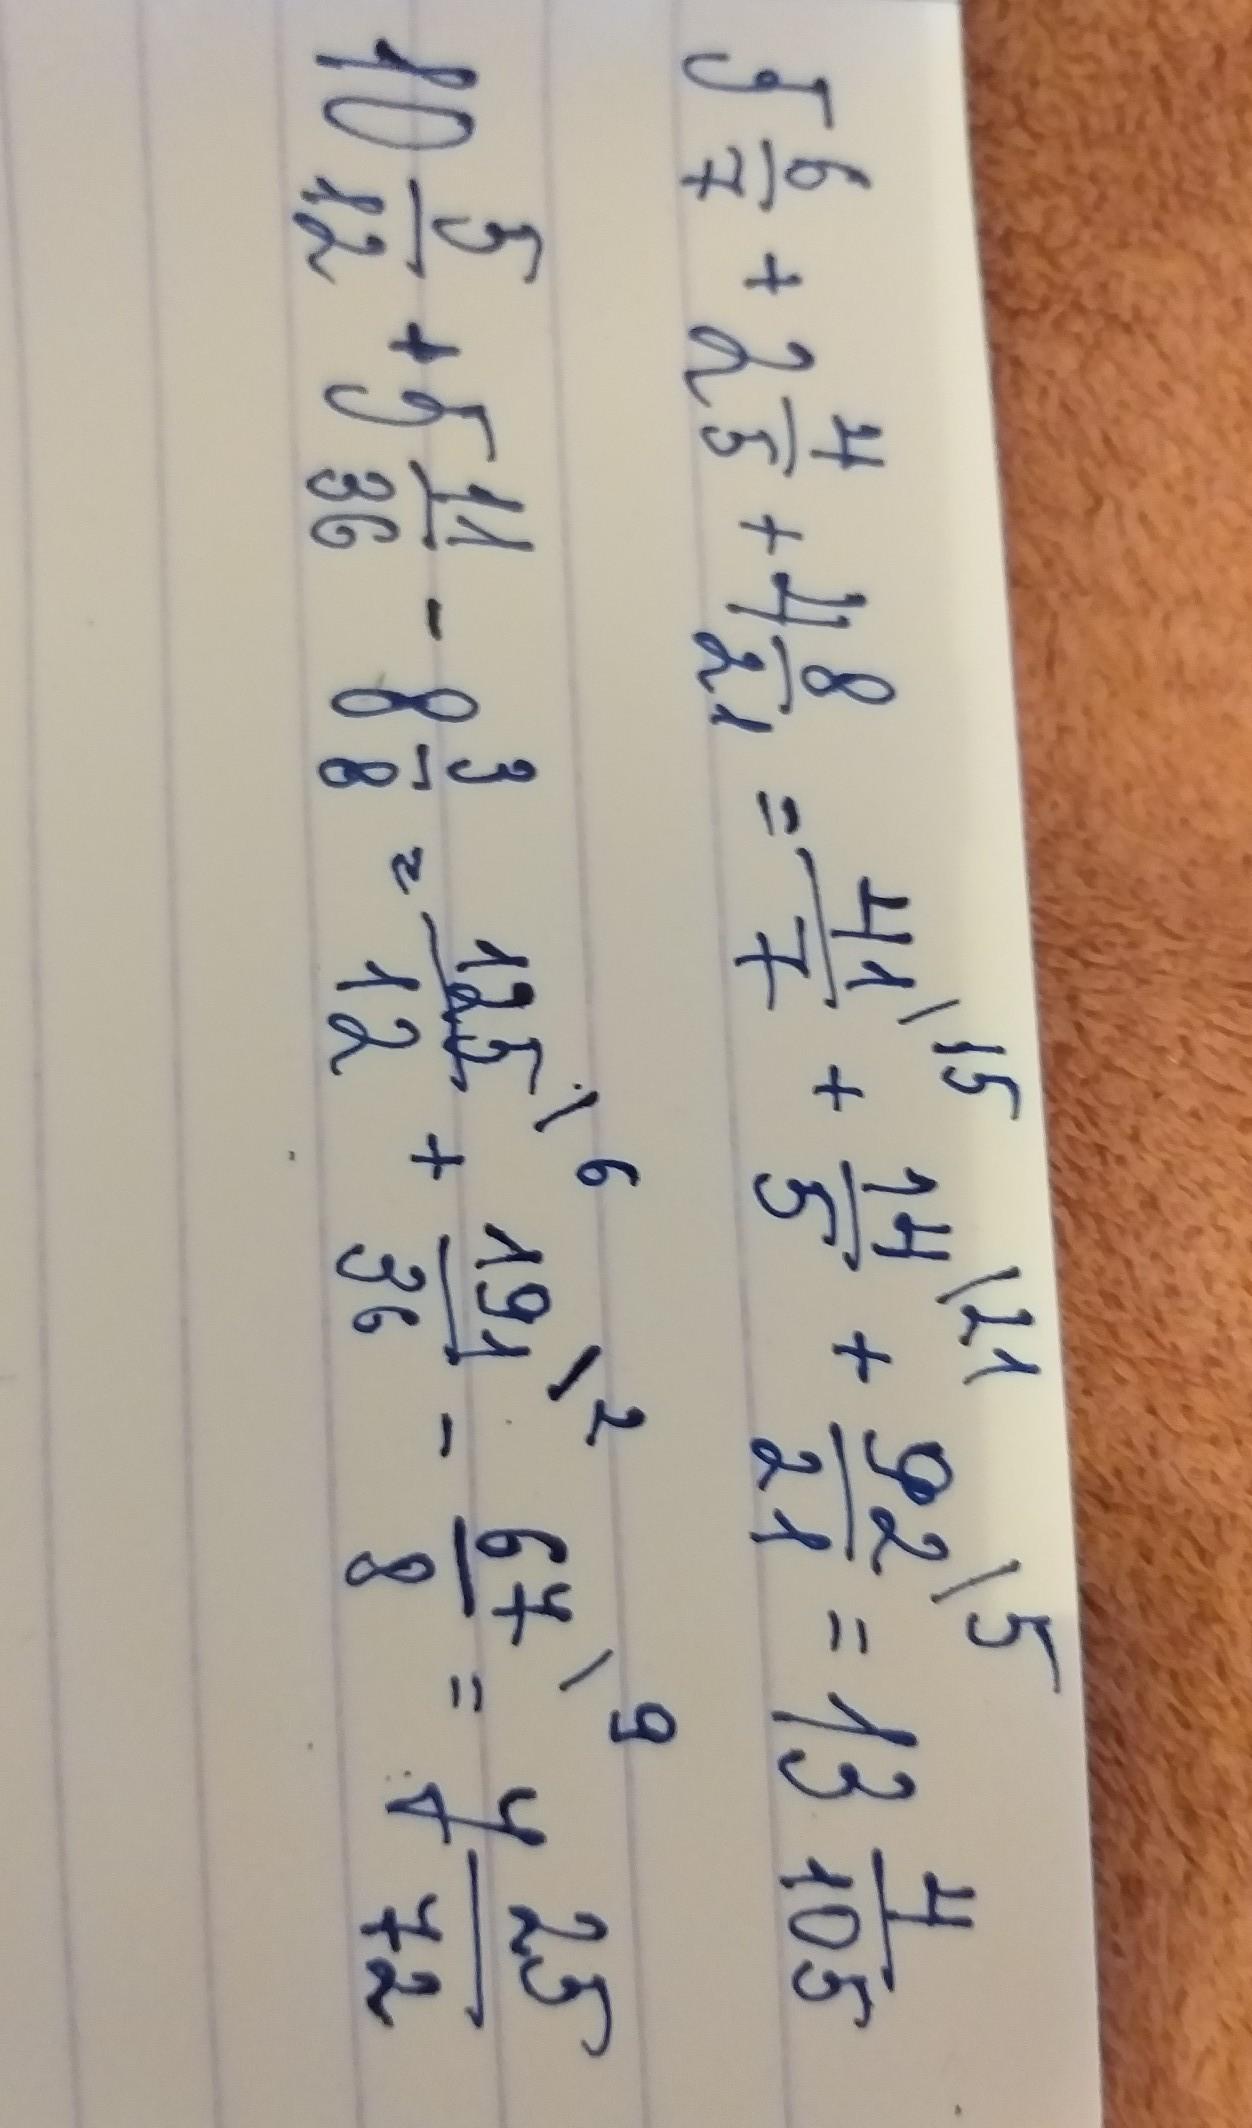 5 6/7 + 2 4/5 + 4 8/21 = 41/7 \15 + 14/5 \21 + 92/21 \5 = 13 4/105
10 5/12 + 5 11/36 - 8 3/8 = 125/12 \6 + 191/36 \2 - 67/8 \9 = 7 25/72